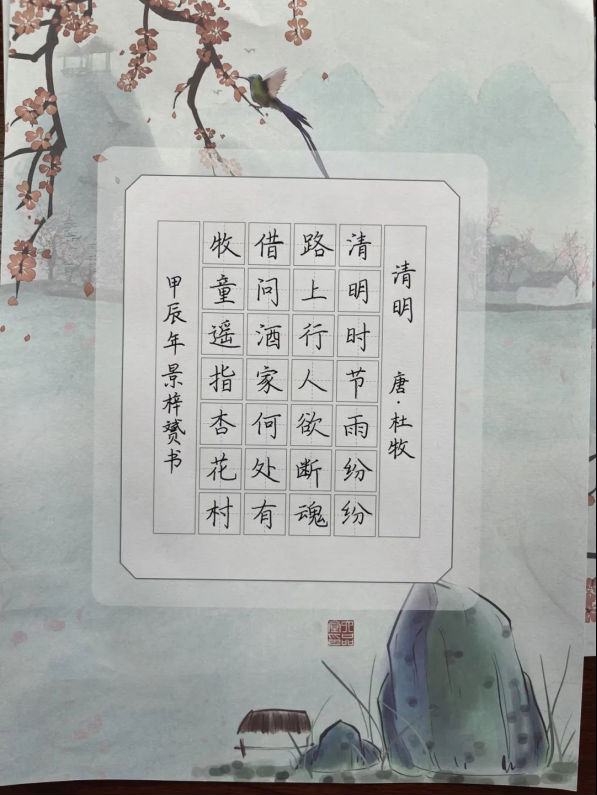 清明 唐·杜牧
清明时节雨纷纷
路上行人欲断魂
借问酒家何处有
牧童遥指杏花村
甲辰年景梓赟书